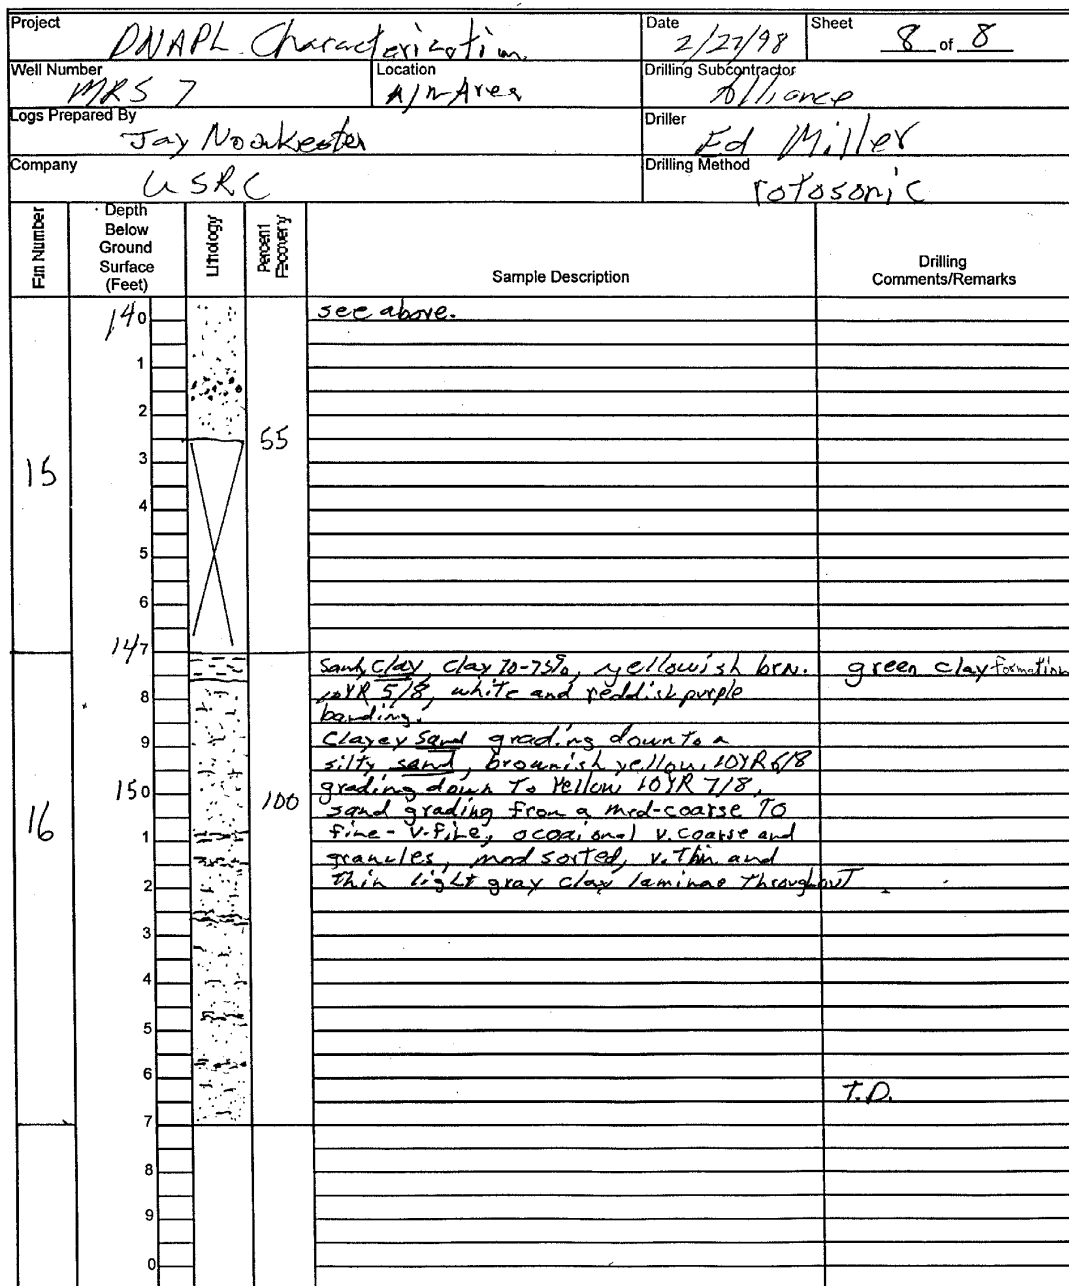 Project DNAPL Characterization Date 2/27/98 Sheet 8 of 8
Well Number MRS 7 Location A/M-Area Drilling Subcontractor Alliance
Logs Prepared By Jay Noonkester Driller Ed Miller
Company WSRC Drilling Method rotosonic
Depth
Below
Ground
Surface
(Feet)
Lithology
Percent
Recovery
Sample Description
Drilling
Comments/Remarks
140 see above.
1
2
55
15 3
4
5
6
147
Sandy Clay, Clay 70-75%, yellowish brn. green clay formation
8 10YR 5/8, white and reddish purple
banding.
9 Clayey Sand grading down to a
silty sand, brownish yellow, 10YR 6/8
150 100 grading down To Yellow 10YR 7/8,
16 sand grading from a med-coarse To
1 fine-v.fine, occaional v. coarse and
granules, mod sorted, v. thin and
2 thin light gray clay laminae Throughout
3
4
5
6
T.D.
7
8
9
0